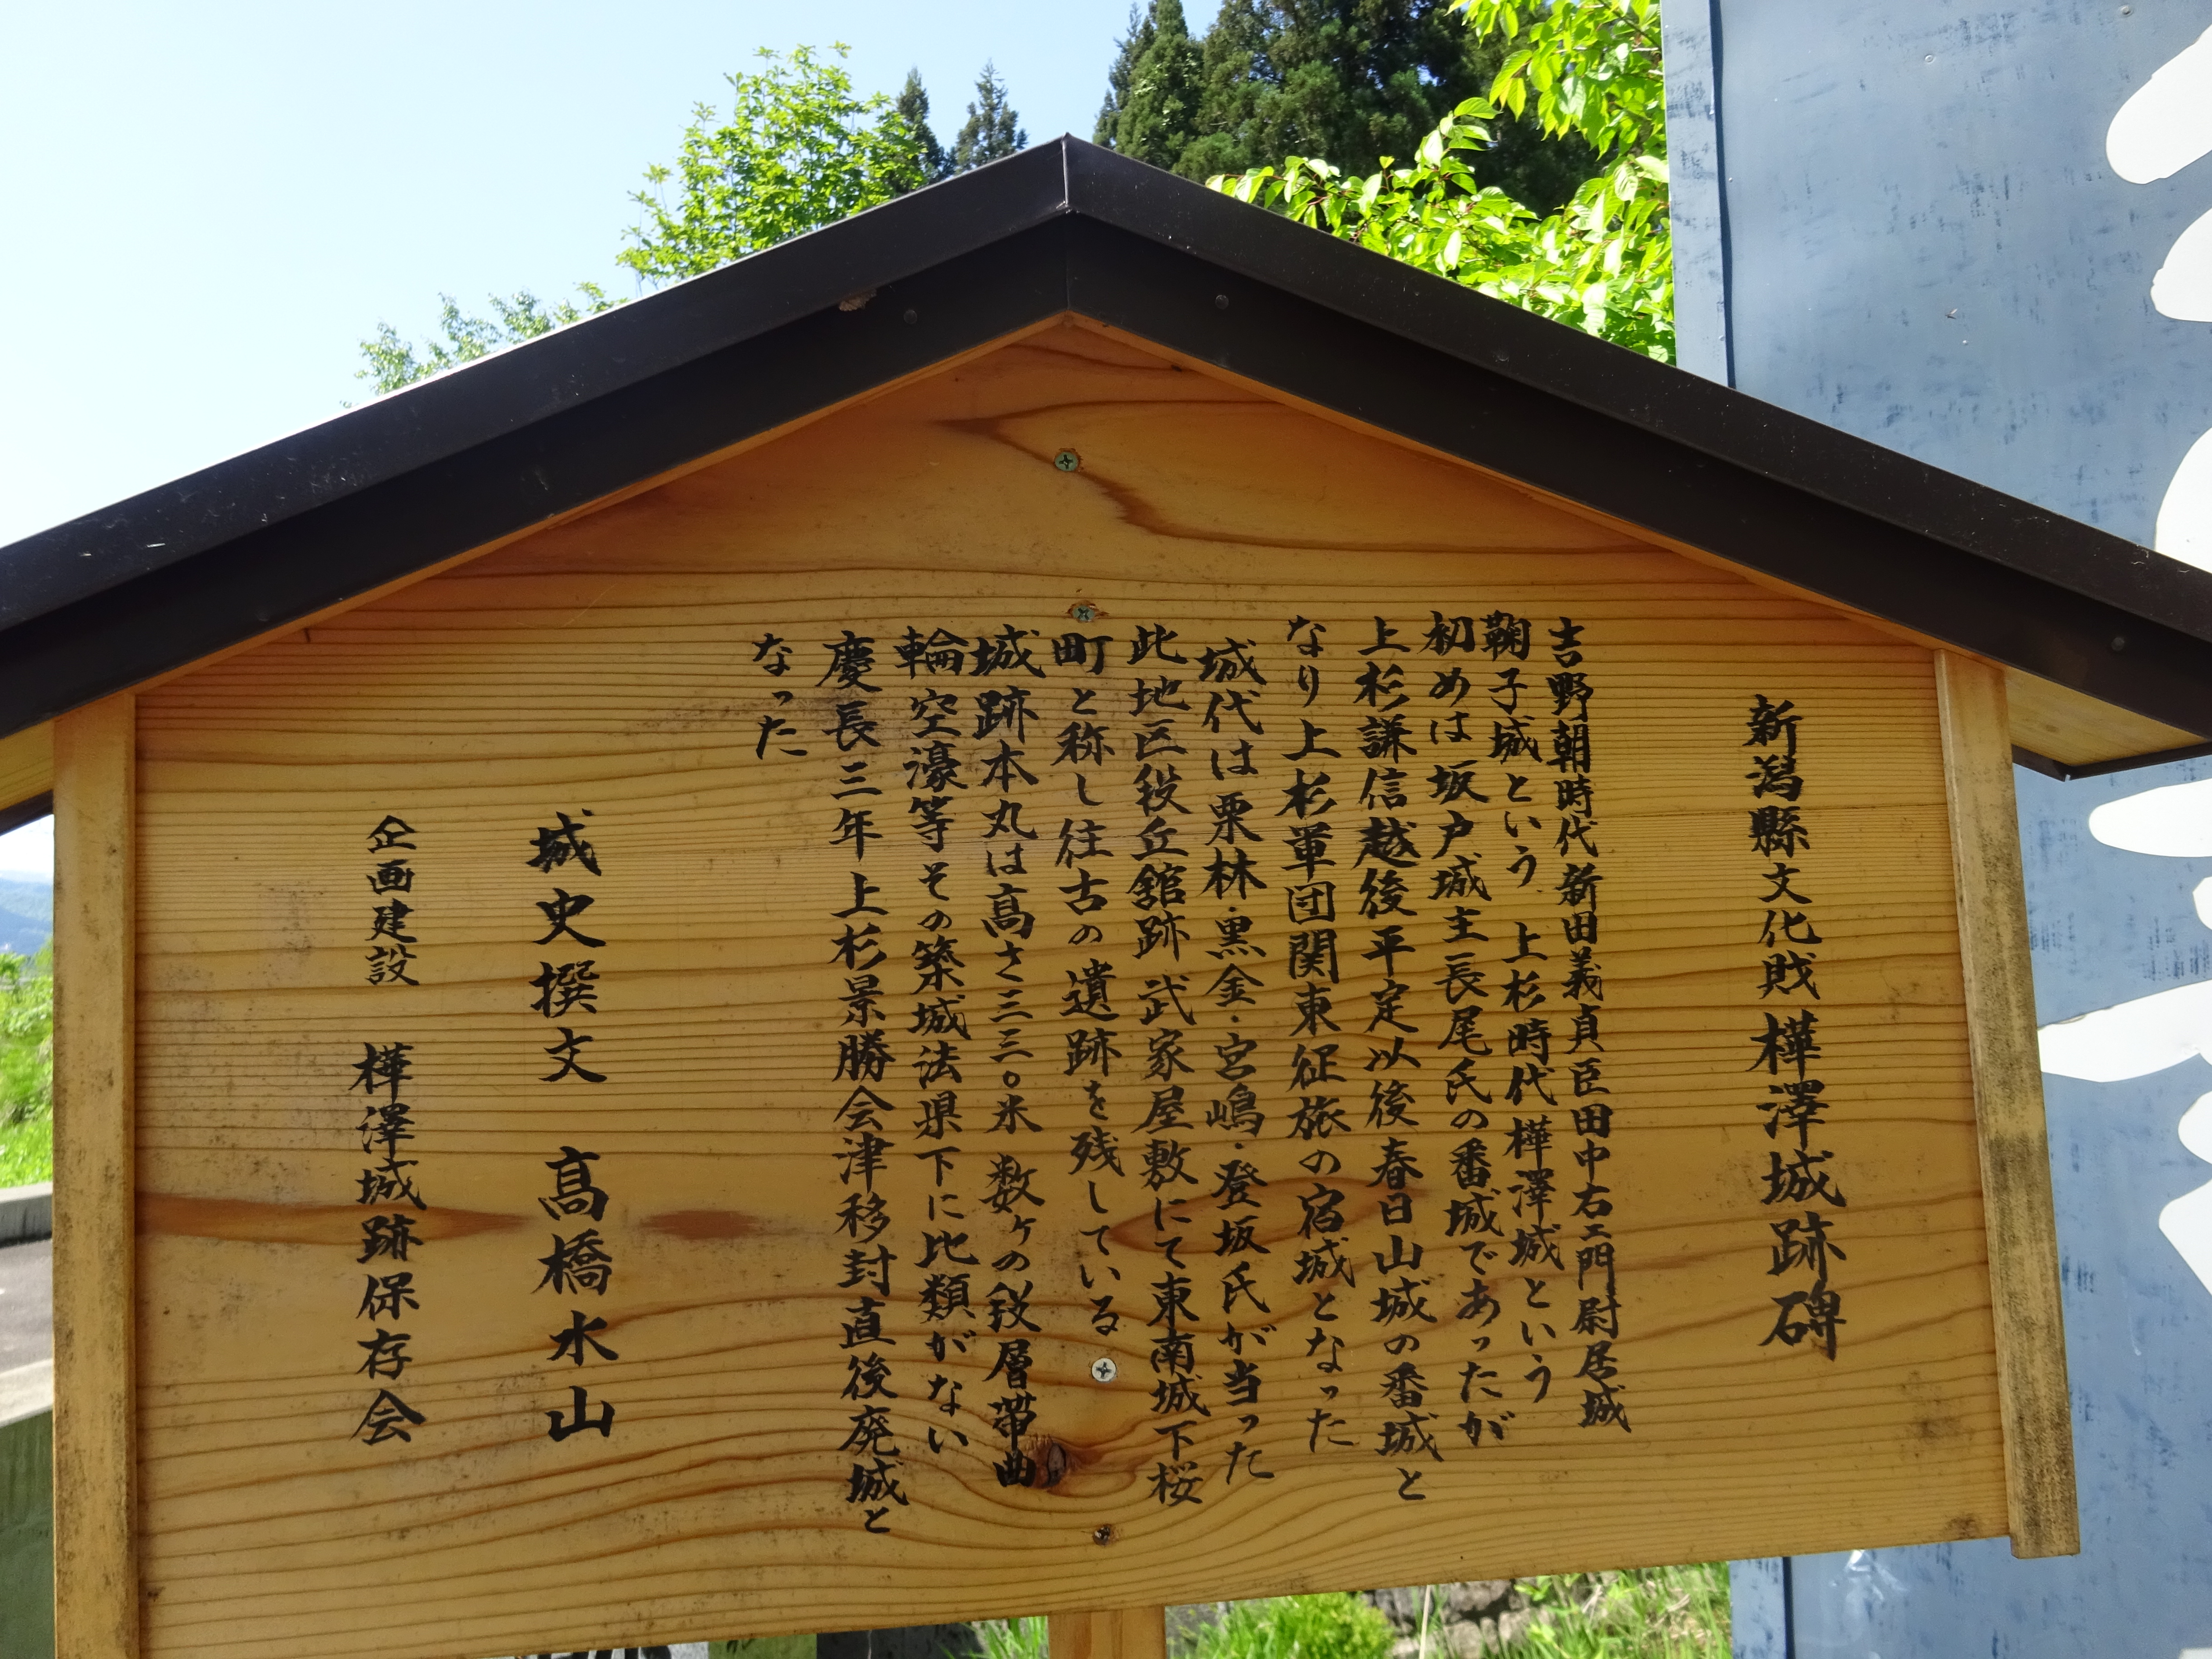 新潟縣文化財樺澤城跡碑
吉野朝時代新田義貞臣田中右エ門尉居城
鞠子城という 上杉時代樺澤城という
初めは坂戸城主長尾氏の番城であったが
上杉謙信越後平定以後春日山城の番城と
なり上杉軍団関東征旅の宿城となった
城代は栗林・黒金・宮嶋・登坂氏が当った
此地区段丘舘跡 武家屋敷にて東南城下桜
町と称し往古の遺跡を残している
城跡本丸は高さ三三〇米 数ヶの段層帯曲
輪空濠等その築城法県下に比類がない
慶長三年 上杉景勝会津移封直後廃城と
なった
城史撰文 髙橋水山
企画建設 樺澤城跡保存会